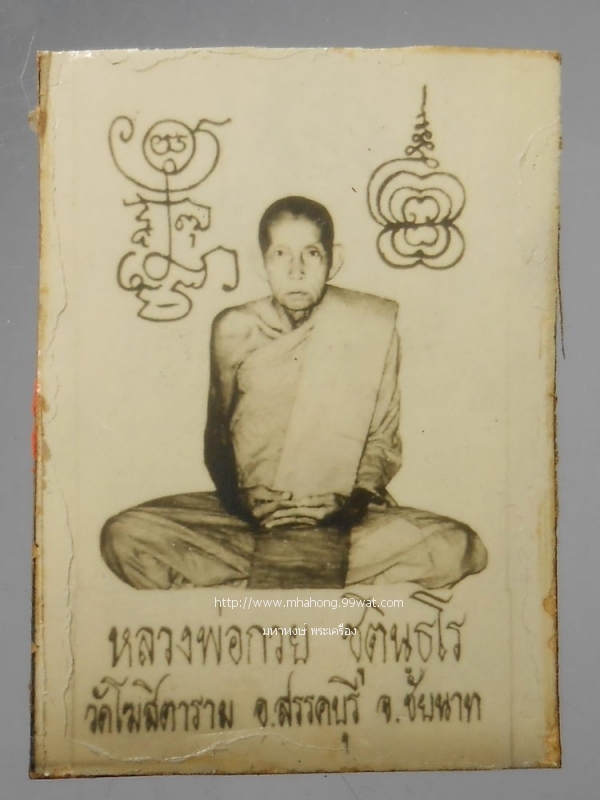 http://www.mhahong.99wat.com
หลวงพ่อกวย ชุตินฺธโร
มหาหงษ์ พระเครื่อง
วัดโฆสิตาราม อ.สรรคบุรี จ.ชัยนาท